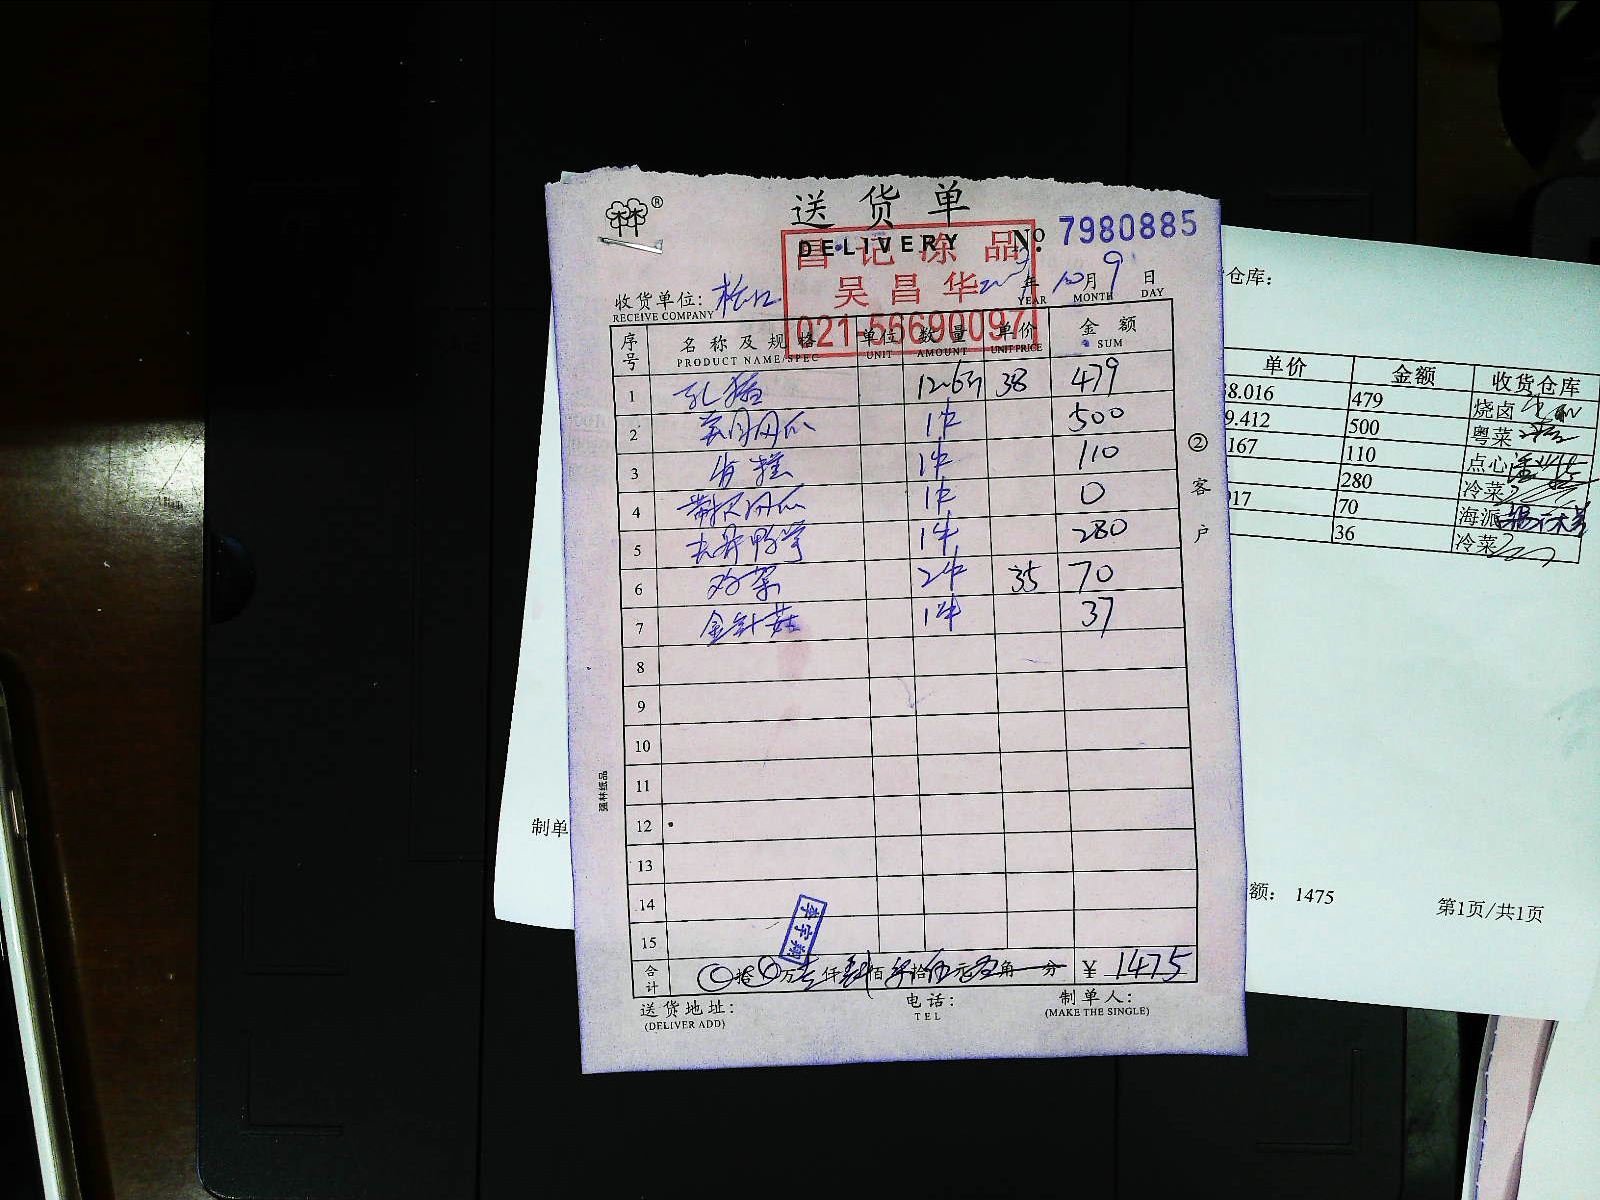 送货单
DELIVERY
No. 7980885
昌记冻品
吴昌华
021-56690097
收货单位: 松江
RECEIVE COMPANY
年 10月 9日
YEAR MONTH DAY
序号 名称及规格 单位 数量 单价 金额
PRODUCT NAME/SPEC UNIT AMOUNT UNIT PRICE SUM
1 乳猪 38 479
2 1件 500
3 1件 110
4 1件 0
5 去骨鸭掌 1件 280
6 鸡架 2件 35 70
7 金针菇 1件 37
8
9
10
11
12
13
14
15
合计 拾 万 仟 佰 拾 伍元 角 分 ¥ 1475
李宇翔
送货地址: 电话: 制单人:
(DELIVER ADD) TEL (MAKE THE SINGLE)
②客户
强林纸品
仓库:
单价 金额 收货仓库
8.016 479 烧卤
9.412 500 粤菜
167 110 点心
280 冷菜
917 70 海派
36 冷菜
制单
额: 1475
第1页/共1页